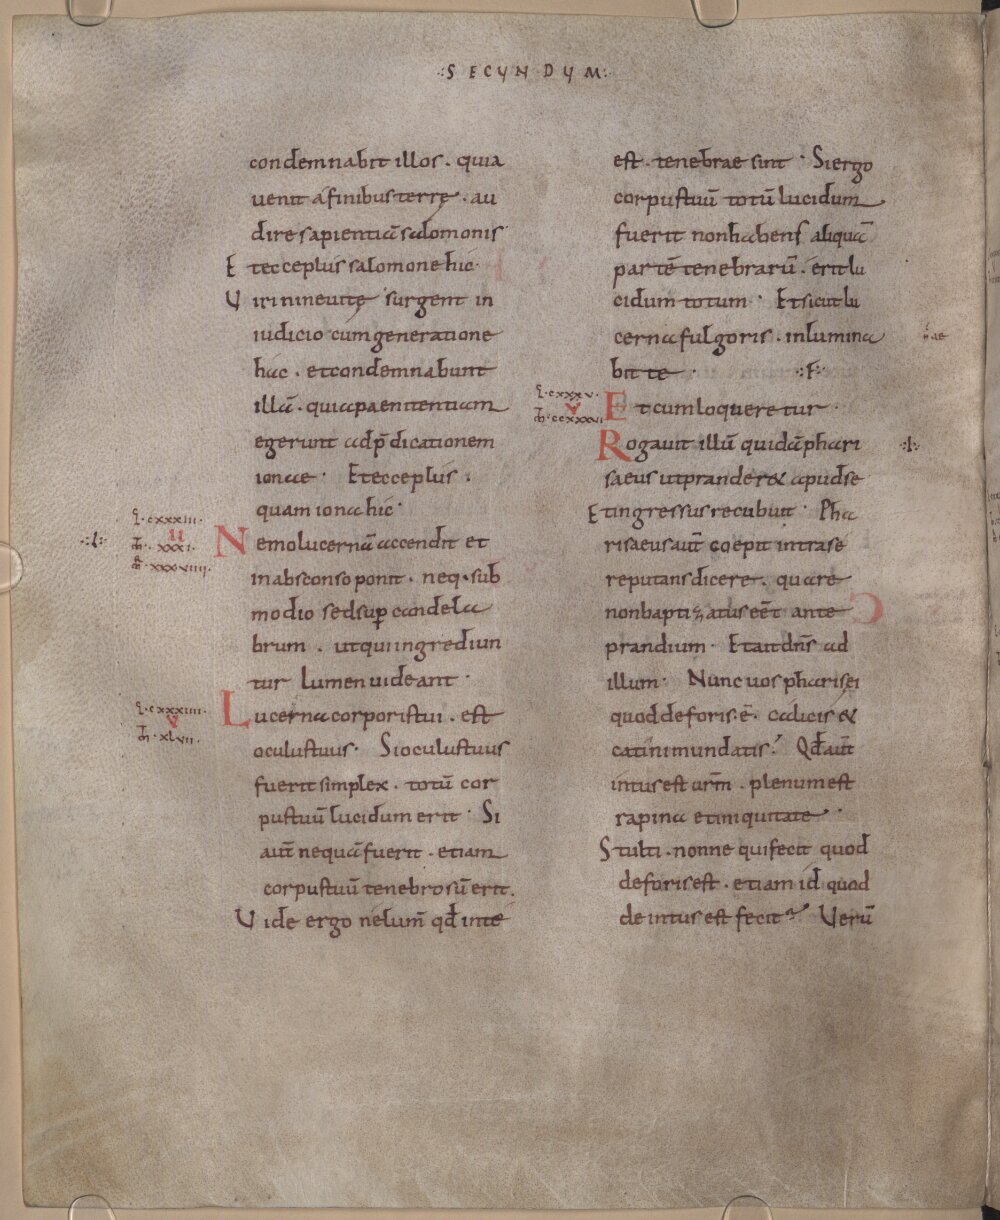 :SECUNDUM:
condemnabit illos. quia
venit a finibus terre. au
dire sapientiā salomonis
Et ecce plus salomone hic.
Viri nineuite surgent in
iudicio cum generatione
hac. et condemnabunt
illā. quia paenitentiam
egerunt ad p̄dicationem
ionae. Et ecce plus
quam iona hic.
L. cxxxiii.
II
M. xxxi.
MR. xxxviiii.
.:l:.
Nemo lucernā accendit et
in absconso ponit. neq. sub
modio sed sup candela
brum. ut qui ingrediun
tur Lumen uideant.
L. cxxxiiii.
V
M. xlvii.
Lucerna corporis tui. est
oculus tuus. Si oculus tuus
fuerit simplex. totū cor
pus tuū lucidum erit. Si
aut̄ nequā fuerit. etiam
corpus tuū tenebrosū erit.
Vide ergo ne lum̄ qđ in te
est. tenebrae sint. Si ergo
corpus tuū totū lucidum
fuerit non habens aliquā
partē tenebrarū. erit lu
cidum totum. Et sicut lu
cerna fulgoris. inlumina
bit te. .:F:.
L. cxxxv.
V
M. ccxxxvi
Et cum loqueretur
Rogauit illū quidā phari .:l:.
saeus ut pranderet & apud se
Et ingressus recubuit. Pha
risaeus aut̄ coepit intra se
reputans dicere. quare
non baptizatus eēt ante
prandium. Et ait dn̄s ad
illum. Nunc uos pharisei
quod deforis ē. calicis &
catini mundatis. Qđ aut̄
intus est urm̄. plenum est
rapina et iniquitate.
Stulti. nonne qui fecit quod
deforis est. etiam id quod
de intus est fecit? Verū